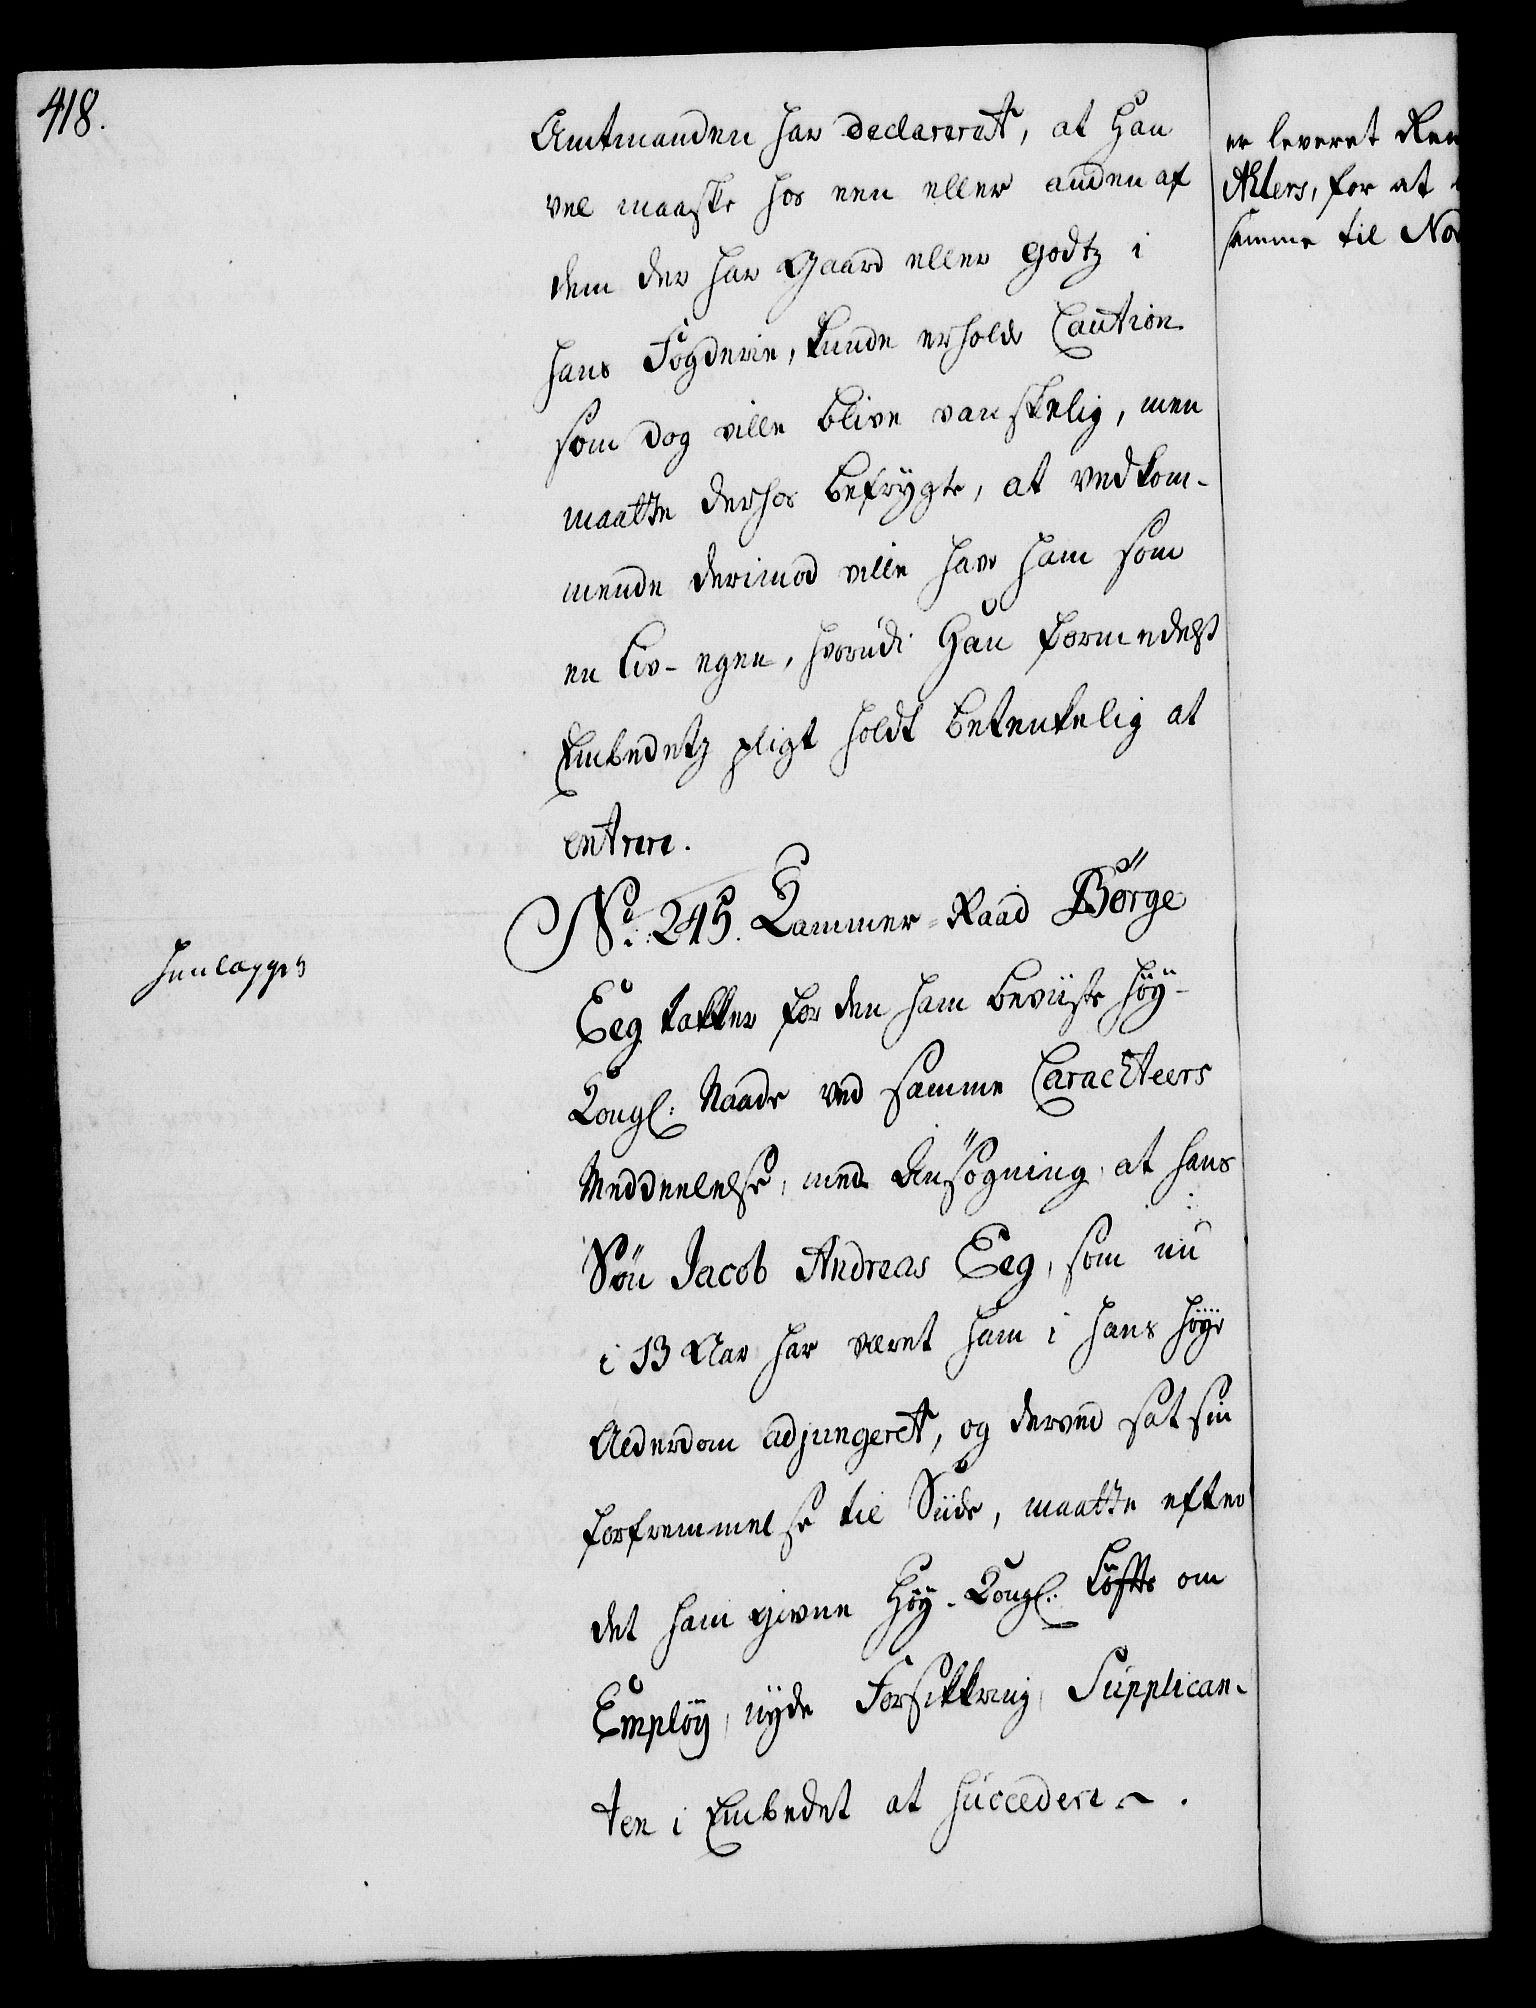 418.
Amtmanden har declareret, at Han
vel maaske hos een eller anden af
dem der har Gaard eller Godtz i
hans Fogderie, kunde erholde Caution
som dog ville blive vanskelig, men
maatte derhos befrygte, at vedkom-
mende derimod ville have ham som
en Liv-egen, hvorudi Han formedelst
Embedetz pligt holdt betenkelig at
entrere.
No. 245. Kammer-Raad Börge
Eeg takker for den ham beviiste höy-
Kongl: Naade ved samme Caracteers
Meddeelelse, med Ansögning, at hans
Sön Jacob Andreas Eeg, som nu
i 13 Aar har været ham i hans höye
Alderdom adjungeret, og derved sat sin
forfremmelse til Siide, maatte efter
det ham givne Höy-Kongl. Löfte om
Employ, nyde Forsikkring, Supplican-
ten i Embedet at succedere.
Henlægges
er leveret
Ahlers, for at
samme til